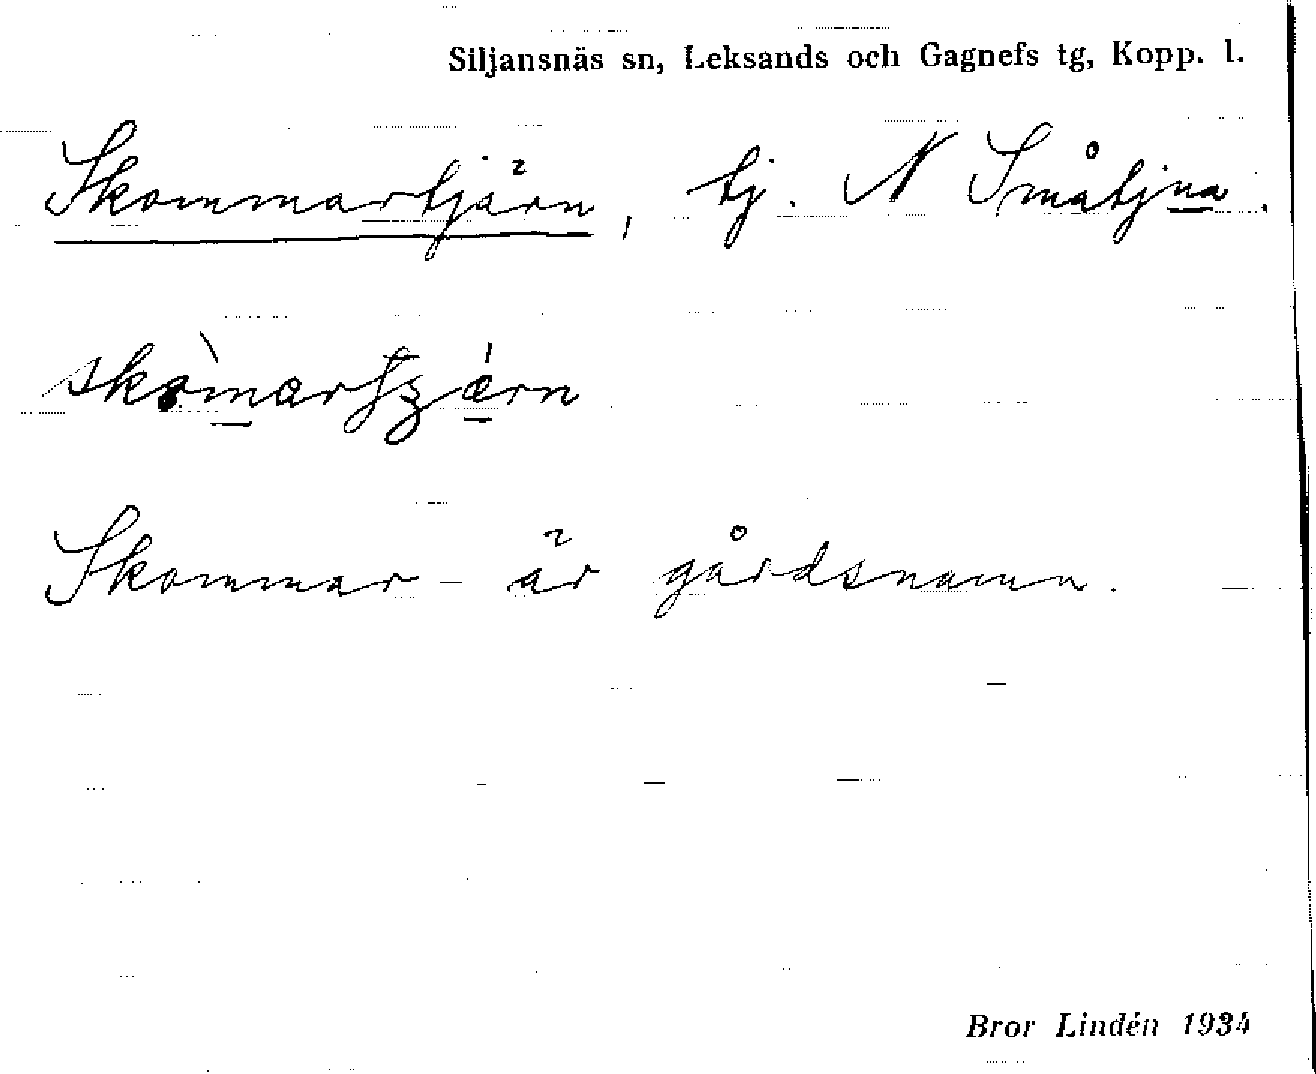 Siljansnäs sn, Leksands och Gagnefs tg, Kopp. l.
Skommartjärn, tj. N Småtjna.
Skommar- är gårdsnamn.
Bror Lindén 1934